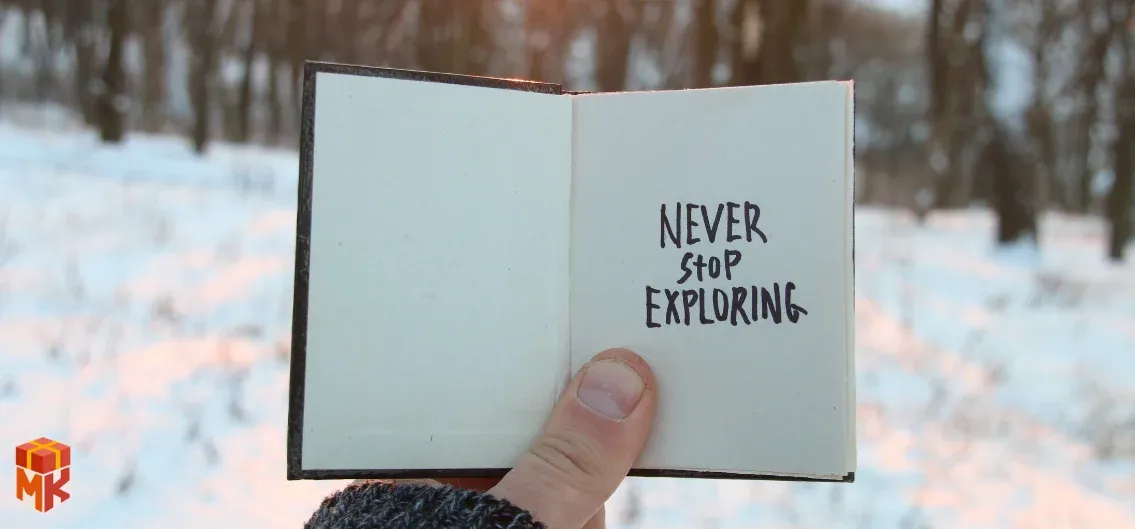 NEVER
stop
EXPLORING
MK